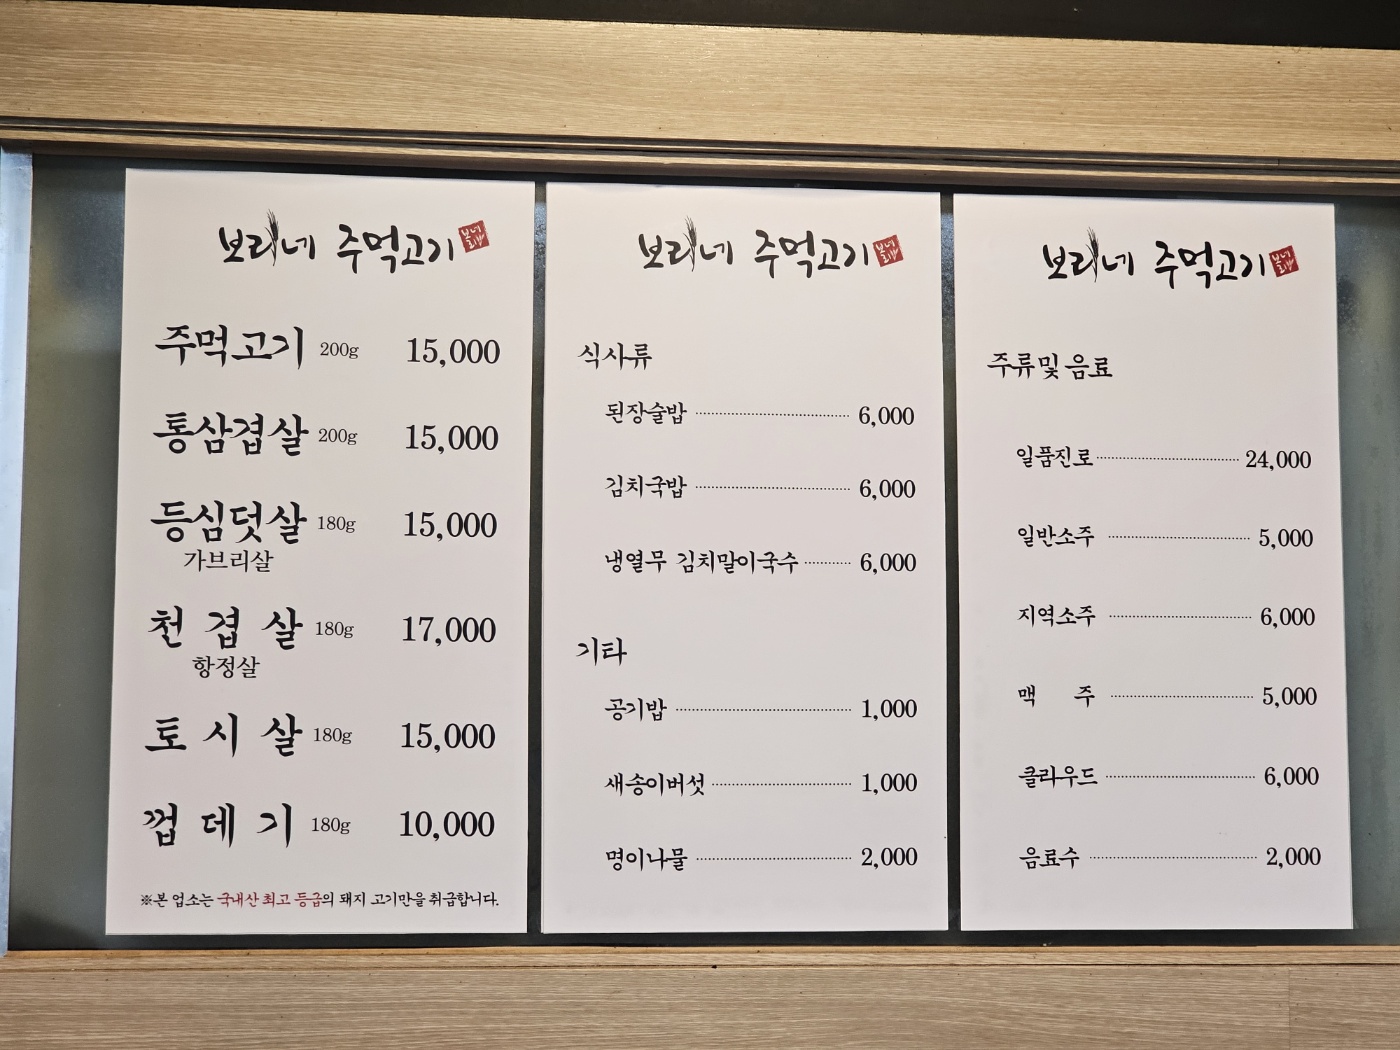 보리네 주먹고기
주먹고기 200g 15,000
통삼겹살 200g 15,000
등심덧살 180g 15,000
가브리살
천겹살 180g 17,000
항정살
토시살 180g 15,000
껍데기 180g 10,000
※본 업소는 국내산 최고 등급의 돼지 고기만을 취급합니다.
보리네 주먹고기
식사류
된장술밥 6,000
김치국밥 6,000
냉열무 김치말이국수 6,000
기타
공기밥 1,000
새송이버섯 1,000
명이나물 2,000
보리네 주먹고기
주류및 음료
일품진로 24,000
일반소주 5,000
지역소주 6,000
맥주 5,000
클라우드 6,000
음료수 2,000